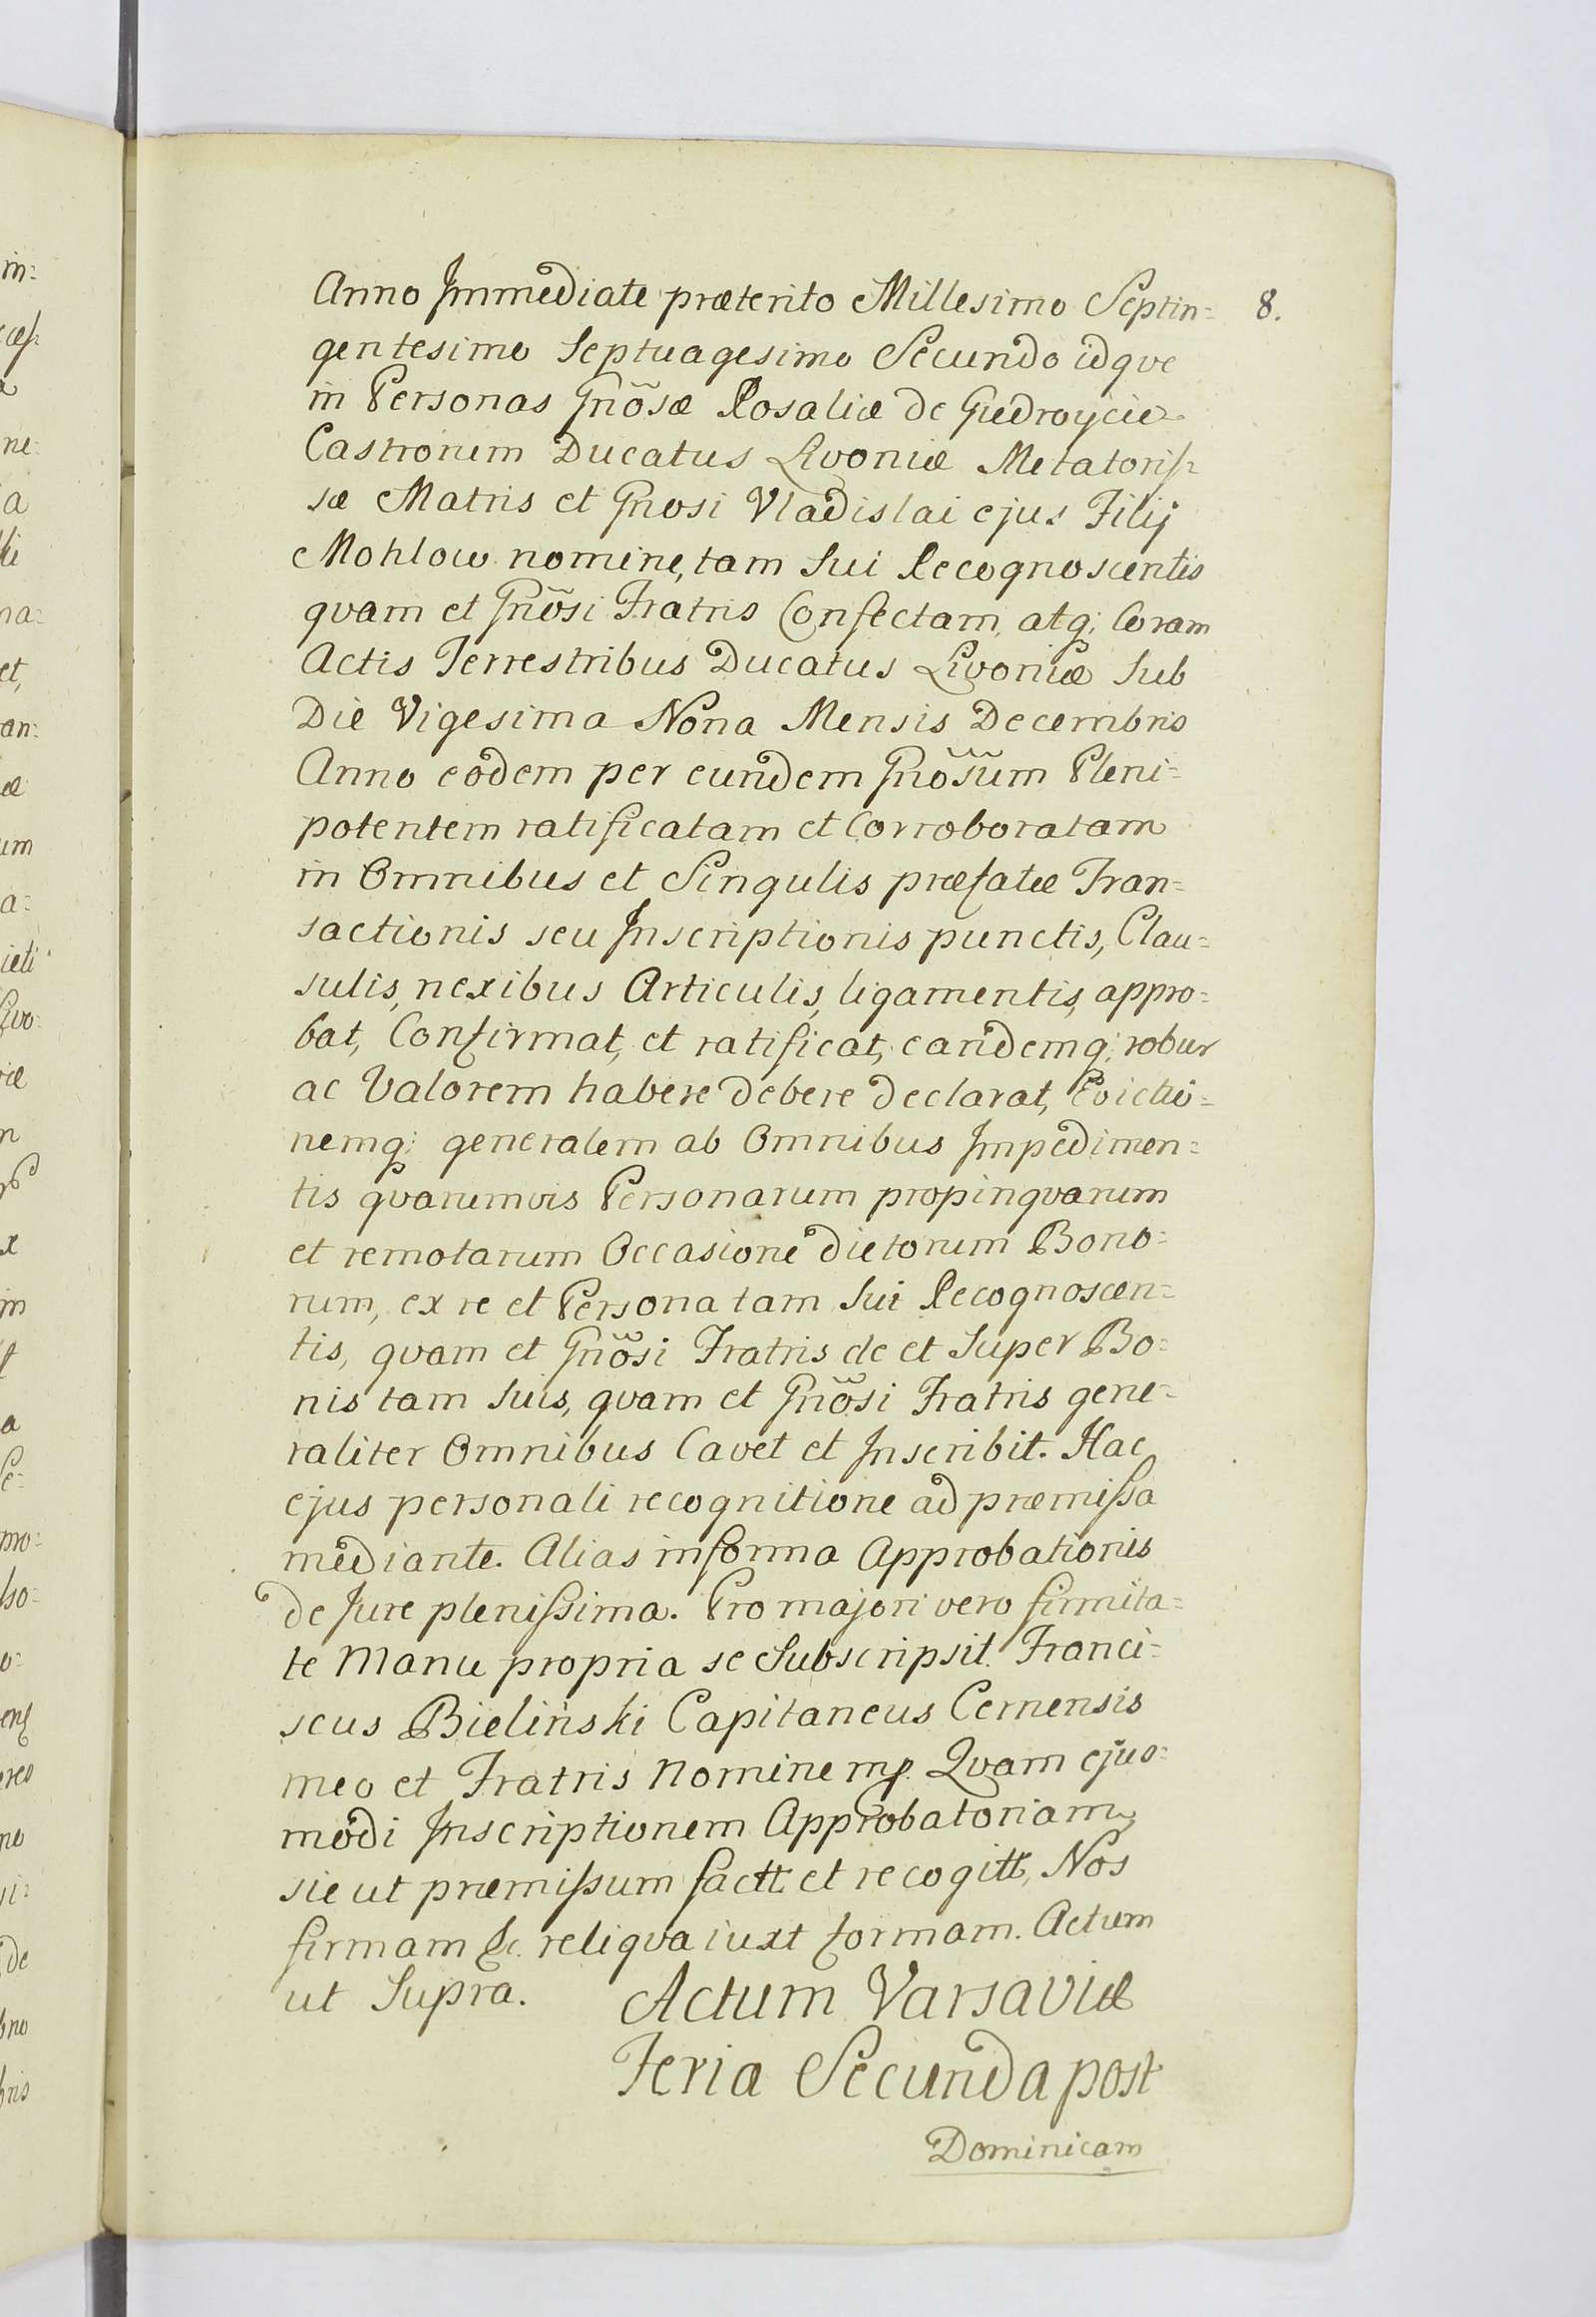 Anno Immediate præterito Millesimo Septin= 8.
gentesimo Septuagesimo Secundo idqve
in Personas Gnõsæ Rosaliæ de Giedroycie
Castrorum Ducatus Livoniæ Metatoriſ=
sæ Matris et Gnosi Vladislai ejus Filij
Mohlow nomine, tam Sui Recognoscentis
qvam et Gnõsi Fratris Confectam, atq; Coram
Actis Terrestribus Ducatus Livoniæ Sub
Die Vigesima Nona Mensis Decembris
Anno eodem per eundem Gnõsum Pleni=
potentem ratificatam et Corroboratam
in Omnibus et Singulis præfatæ Tran=
sactionis seu Inscriptionis punctis, Clau=
sulis, nexibus Articulis, ligamentis, appro=
bat, Confirmat, et ratificat, eandemq; robur
ac Valorem habere debere declarat, Evictio=
nemq; generalem ab Omnibus Impedimen=
tis qvarumvis Personarum propinqvarum
et remotarum Occasione dictorum Bono=
rum, ex re et Persona tam Sui Recognoscen=
tis, qvam et Gnõsi Fratris de et Super Bo=
nis tam Suis, qvam et Gnõsi Fratris gene=
raliter Omnibus Cavet et Inscribit. Hac
ejus personali recognitione ad præmiſsa
mediante. Alias in forma Approbationis
de Jure pleniſsima. Pro majori vero firmita=
te Manu propria se Subscripsit. Franci=
scus Bieliński Capitaneus Cernensis
meo et Fratris Nomine mp. Qvam ejus=
modi Inscriptionem Approbatoriam
sic ut præmiſsum factt et recogitt, Nos
firmam &c. reliqva iuxt formam. Actum
ut Supra. Actum Varsaviæ
Feria Secunda post
Dominicam